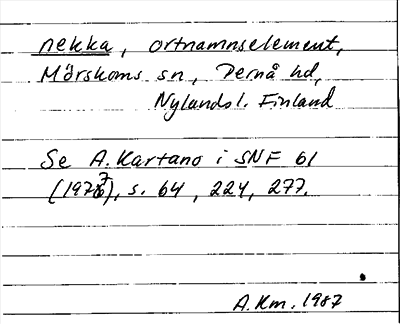 nekka, ortnamnselement,
Mörskoms sn, Pernå hd,
Nylands l. Finland
Se A. Kartano i SNF 61
(1977), s. 64, 224, 277.
A.Km. 1987